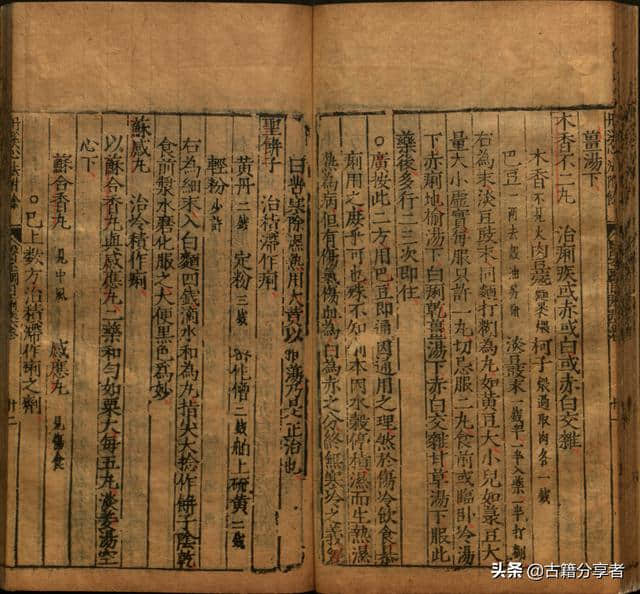 薑湯下
木香不二丸 治痢疾或赤或白或赤白交雜
木香不見火 肉豆蔻 柯子 取肉各一錢
巴豆一兩去殼油另研 一錢半半入藥一半打糊
右為末淡豆豉末同麵打糊為丸如黃豆大小兒如菉豆大
量大小虛實每服只許一丸切忌服二丸食前或臨臥冷湯
下赤痢地榆湯下白痢乾薑湯下赤白交雜甘草湯下服此
藥後多行二三次即住
○廣按此二方用巴豆即通因通用之理然於傷冷飲食暴
痢用之庶乎可也殊不知痢本因水穀停積濕而生熱濕
熱為病但有傷氣傷血為白為赤之分終無寒冷之義
寒除濕熱用大黃以 蕩乃是正治也
聖餅子 治積滯作痢
黃丹二錢 定粉三錢 作僧二錢 舶上硫黃二錢
輕粉少許
右為細末入白麵四錢滴水和為丸指尖大捻作餅子陰乾
食前漿水磨化服之大便黑色為妙
蘇感丸 治冷積作痢
以蘇合香丸與感應丸二藥和勻如粟大每五丸淡姜湯空
心下
蘇合香丸 見中風 感應丸 見傷食
○已上數方治積滯作痢之劑
头条 @古籍分享者